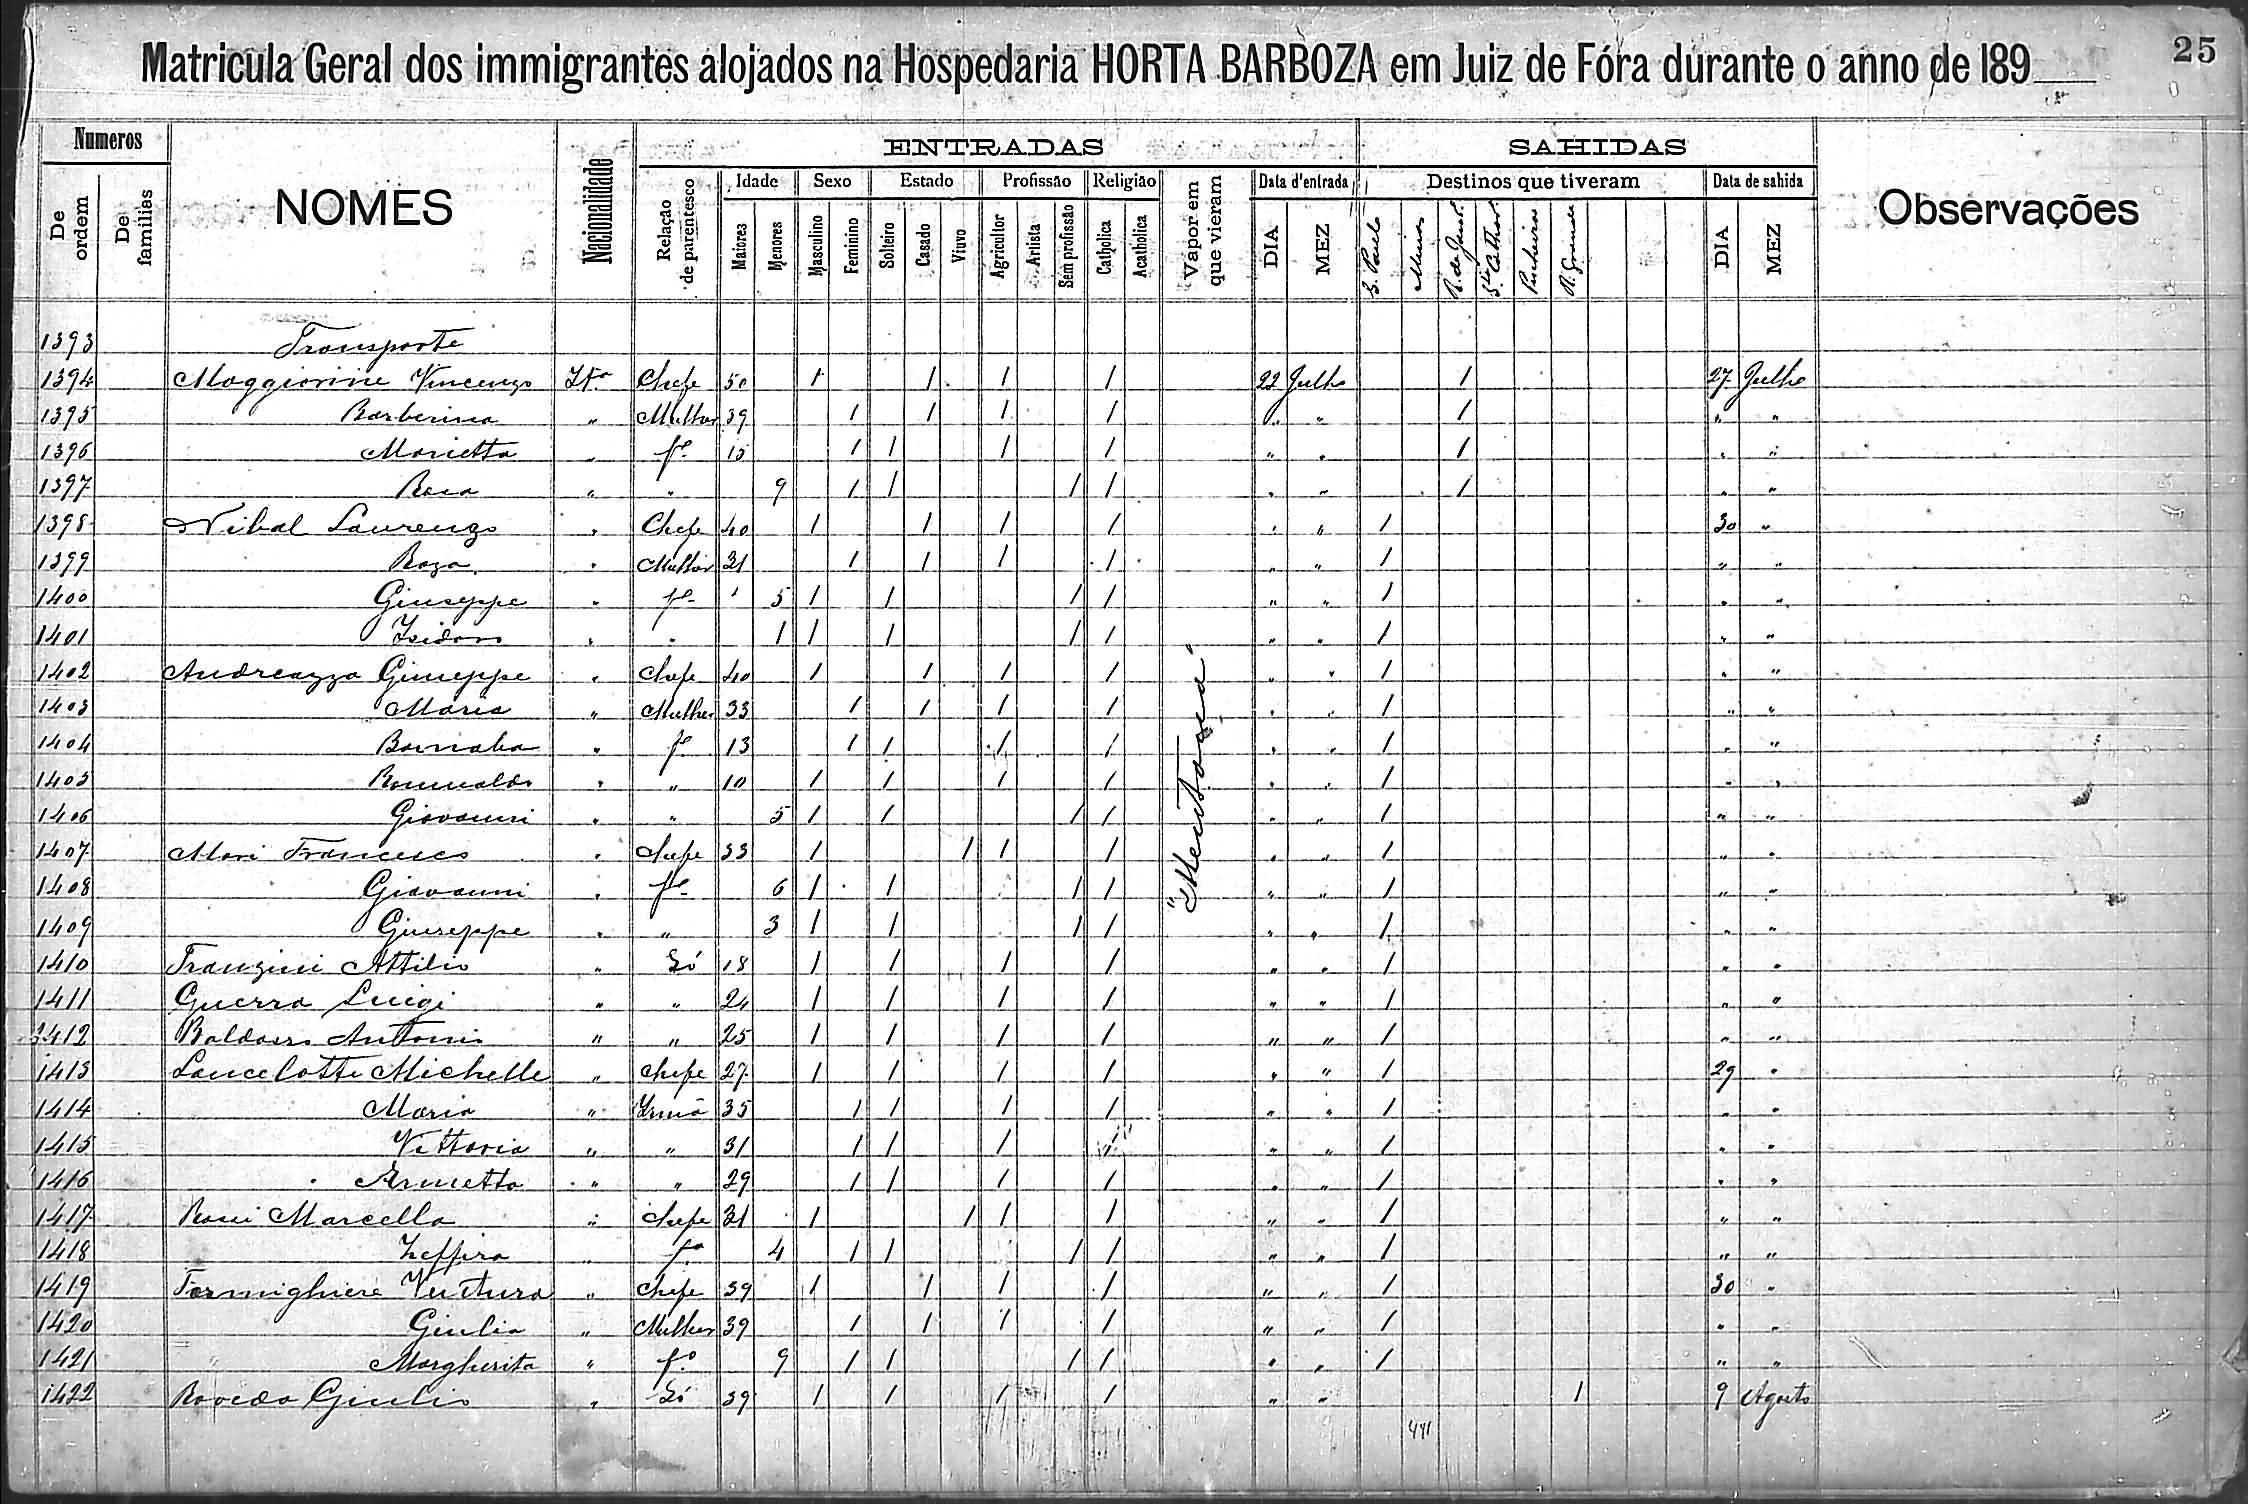 25
Matricula Geral dos immigrantes alojados na Hospedaria HORTA BARBOZA em Juiz de Fóra durante o anno de 189
Numeros NOMES Nacionalidade ENTRADAS SAHIDAS Observações
De ordem De familias Relação de parentesco Idade Sexo Estado Profissão Religião Vapor em que vieram Data d'entrada Destinos que tiveram Data de sahida
Maiores Menores Masculino Feminino Solteiro Casado Viuvo Agricultor Artista Sem profissão Catholica Acatholica DIA MEZ S. Paulo Minas R. de Janro. Sta Cathar. R. Grande DIA MEZ
"Mentana"
1393 Transporte
1394 Maggiorine Vincenzo Ita Chefe 50 1 1 1 1 22 Julho 1 27 Julho
1395 Barberina " Mulher 39 1 1 1 1 " " 1 " "
1396 Marietta " fa 15 1 1 1 1 " " 1 " "
1397 Rosa " " 9 1 1 1 1 " " 1 " "
1398 Nibal Laurenzo " Chefe 40 1 1 1 1 " " 1 30 "
1399 Roza " Mulher 31 1 1 1 1 " " 1 " "
1400 Giuseppe " fo 5 1 1 1 1 " " 1 " "
1401 Isidoro " " 1 1 1 1 1 " " 1 " "
1402 Andreazza Giuseppe " Chefe 40 1 1 1 1 " " 1 " "
1403 Maria " Mulher 33 1 1 1 1 " " 1 " "
1404 Barnaba " fo 13 1 1 1 1 " " 1 " "
1405 Romualdo " " 10 1 1 1 1 " " 1 " "
1406 Giovanni " " 5 1 1 1 1 " " 1 " "
1407 Mari Francesco " Chefe 33 1 1 1 1 " " 1 " "
1408 Giovanni " fo 6 1 1 1 1 " " 1 " "
1409 Giuseppe " " 3 1 1 1 1 " " 1 " "
1410 Franzini Attilio " Só 18 1 1 1 1 " " 1 " "
1411 Guerra Luigi " " 24 1 1 1 1 " " 1 " "
1412 Baldassi Antonio " " 25 1 1 1 1 " " 1 " "
1413 Lancelotti Michelle " Chefe 27 1 1 1 1 " " 1 29 "
1414 Maria " Irmã 35 1 1 1 1 " " 1 " "
1415 Vittoria " " 31 1 1 1 1 " " 1 " "
1416 Ermetta " " 29 1 1 1 1 " " 1 " "
1417 Rossi Marcello " Chefe 31 1 1 1 1 " " 1 " "
1418 Zeffira " fa 4 1 1 1 1 " " 1 " "
1419 Formighiere Ventura " Chefe 39 1 1 1 1 " " 1 30 "
1420 Giulia " Mulher 39 1 1 1 1 " " 1 " "
1421 Margherita " fa 9 1 1 1 1 " " 1 " "
1422 Roveda Giulio " Só 39 1 1 1 1 " " 1 9 Agosto
441